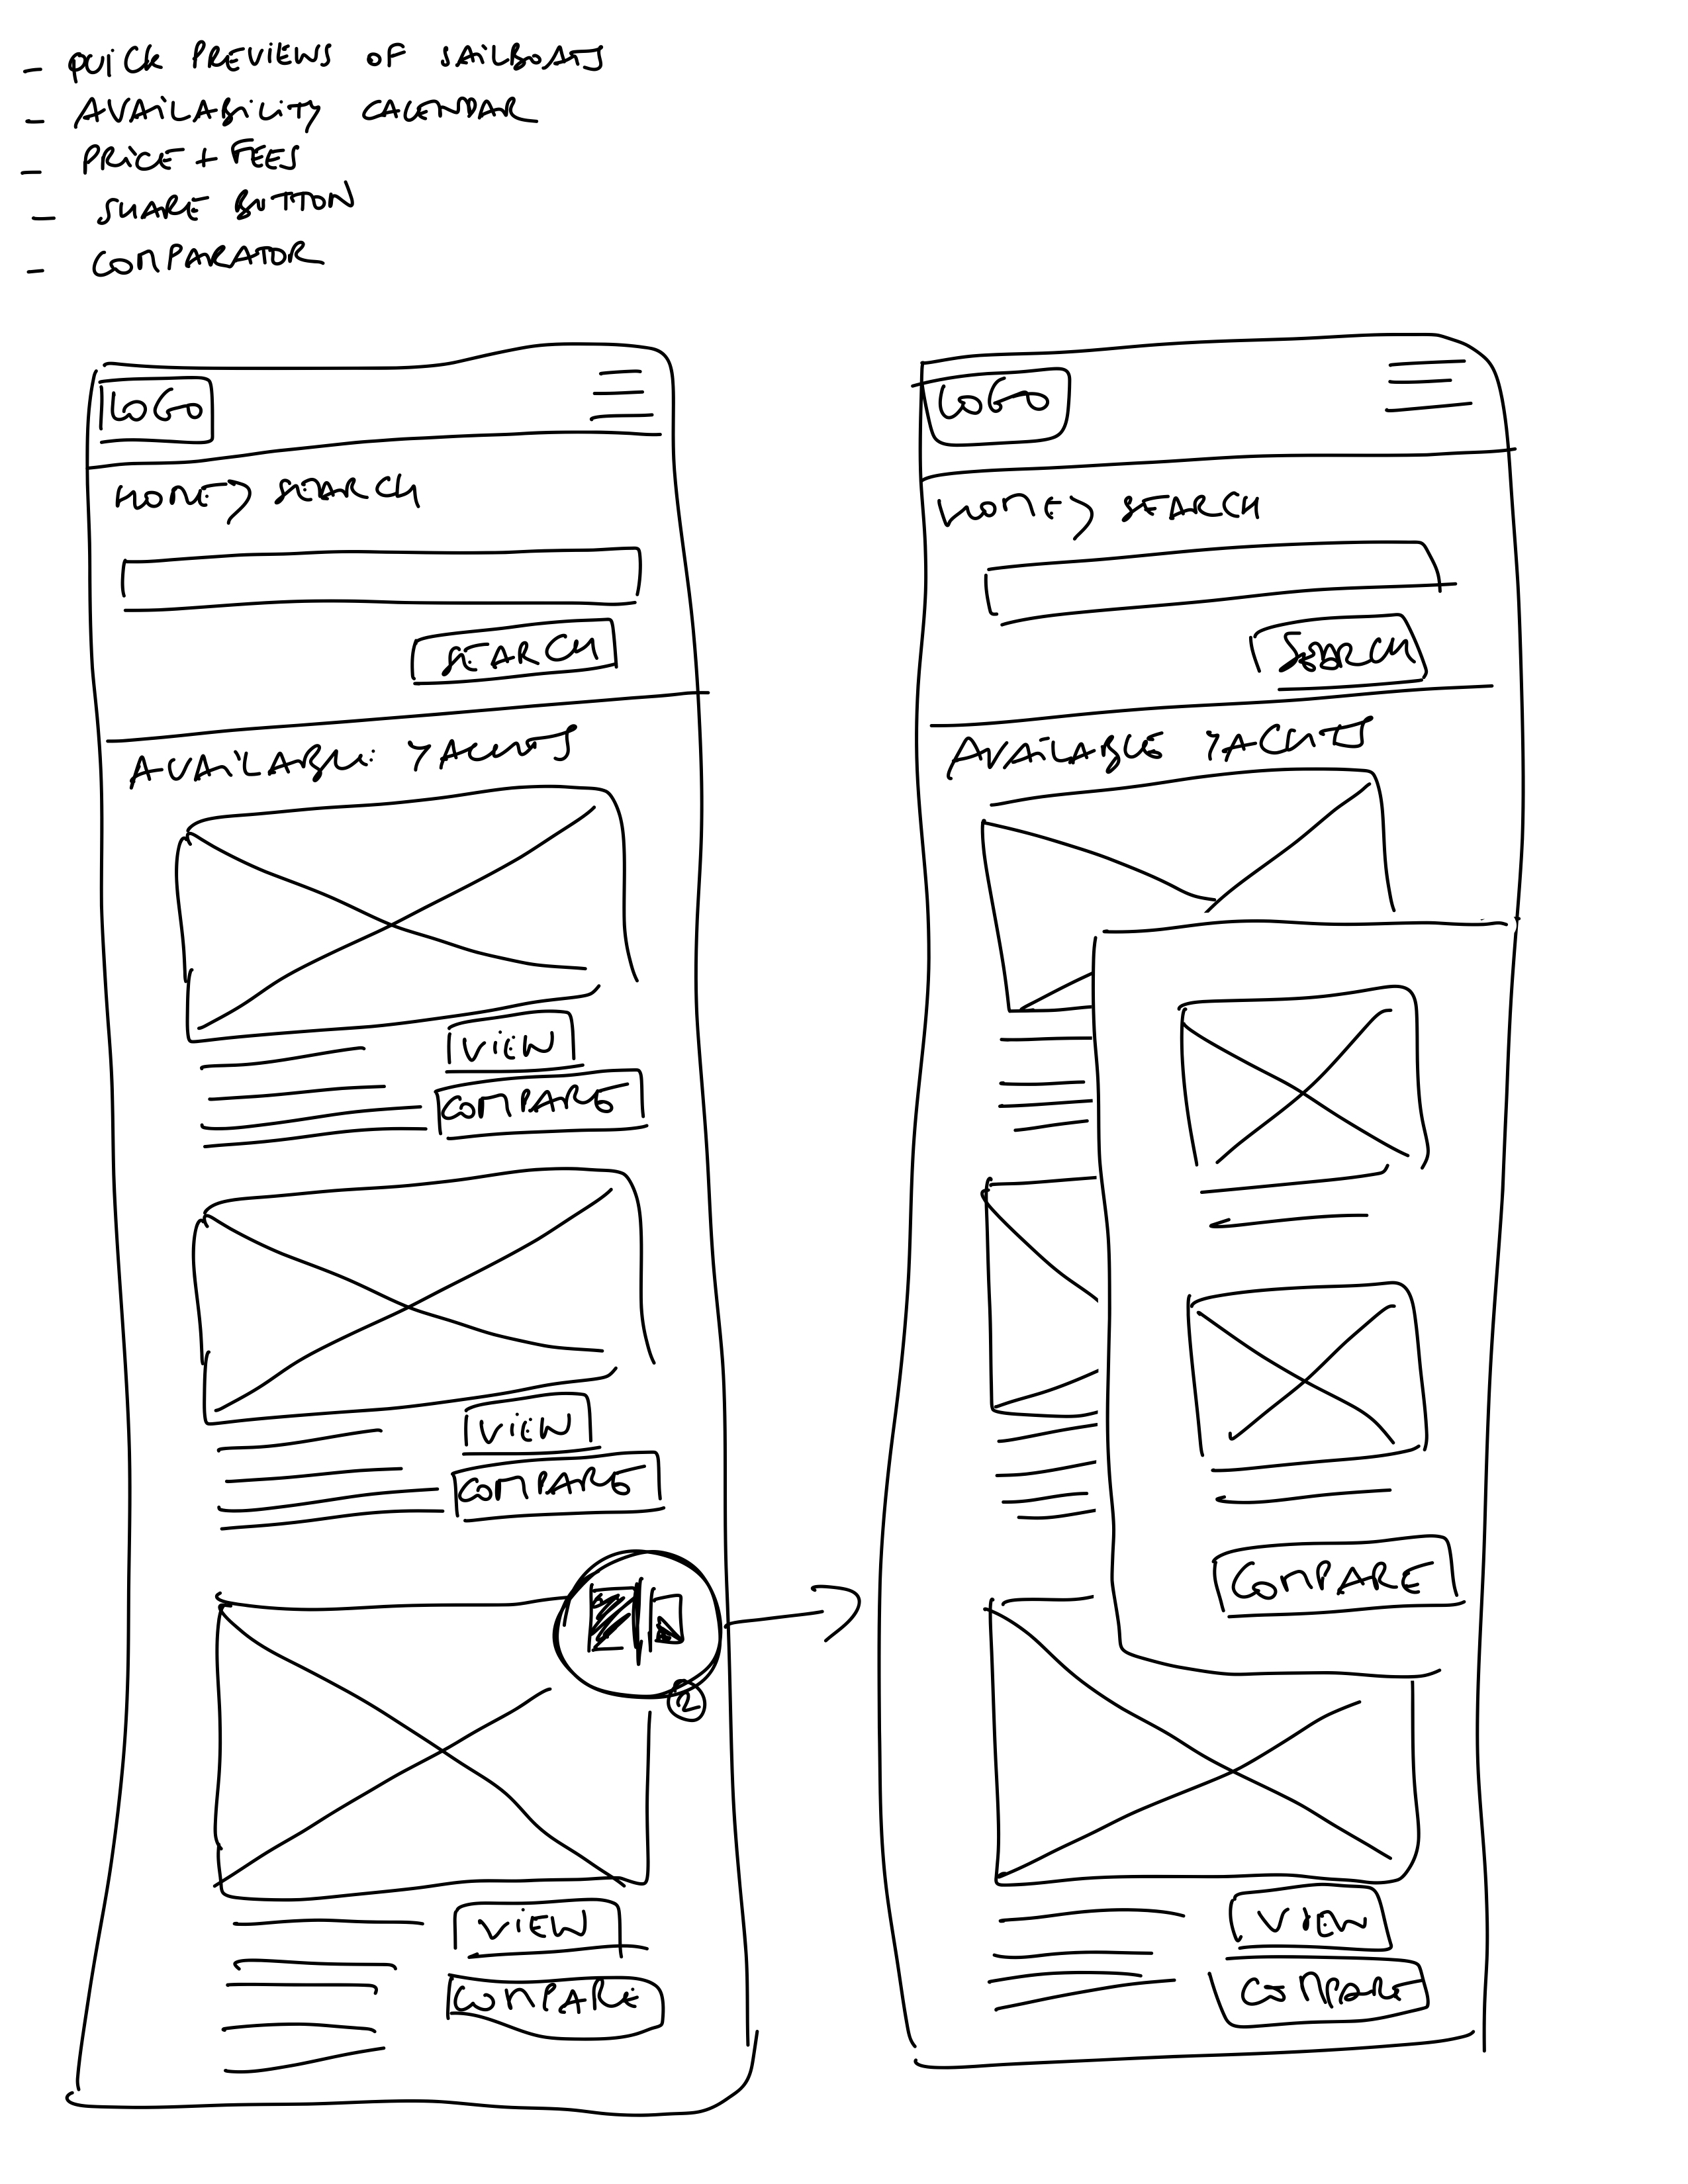 - QUICK PREVIEWS OF SAILBOATS
- AVAILABILITY CALENDAR
- PRICE + FEES
- SHARE BUTTON
- COMPARATOR
LOGO
HOME > SEARCH
SEARCH
AVAILABLE YACHTS
VIEW
COMPARE
VIEW
COMPARE
2
VIEW
COMPARE
LOGO
HOME > SEARCH
SEARCH
AVAILABLE YACHTS
COMPARE
VIEW
COMPARE